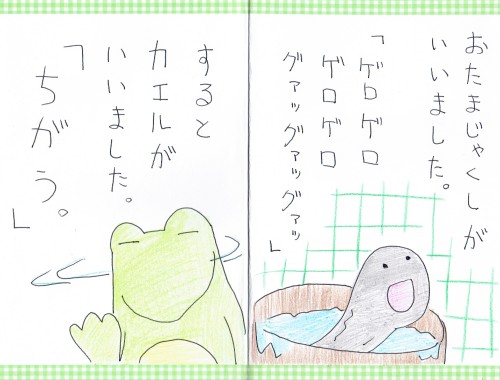 おたまじゃくしが
いいました。
「ゲロゲロ
ゲロゲロ
グァッグァッグァッ」
すると
カエルが
いいました。
「ちがう。」